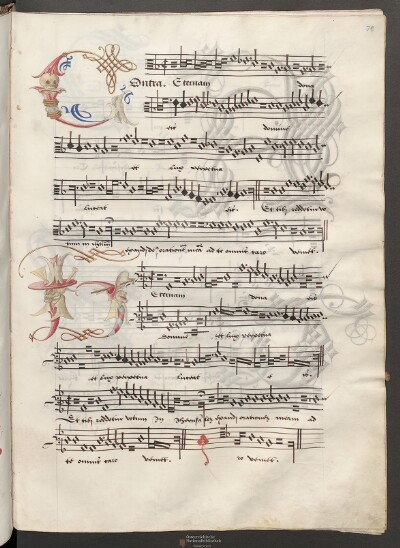 Contra. Eternam dona
eis domine
et lux perpetua
luceat eis. Et tibi reddetur vo
tum in
exaudi orationem meam ad te omnis caro veniet.
Eternam dona eis
domine et lux perpetua
et lux perpetua luceat e is.
Et tibi reddetur votum In exaudi orationem meam ad
te omnis caro veniet. te veniet.
Österreichische
Nationalbibliothek